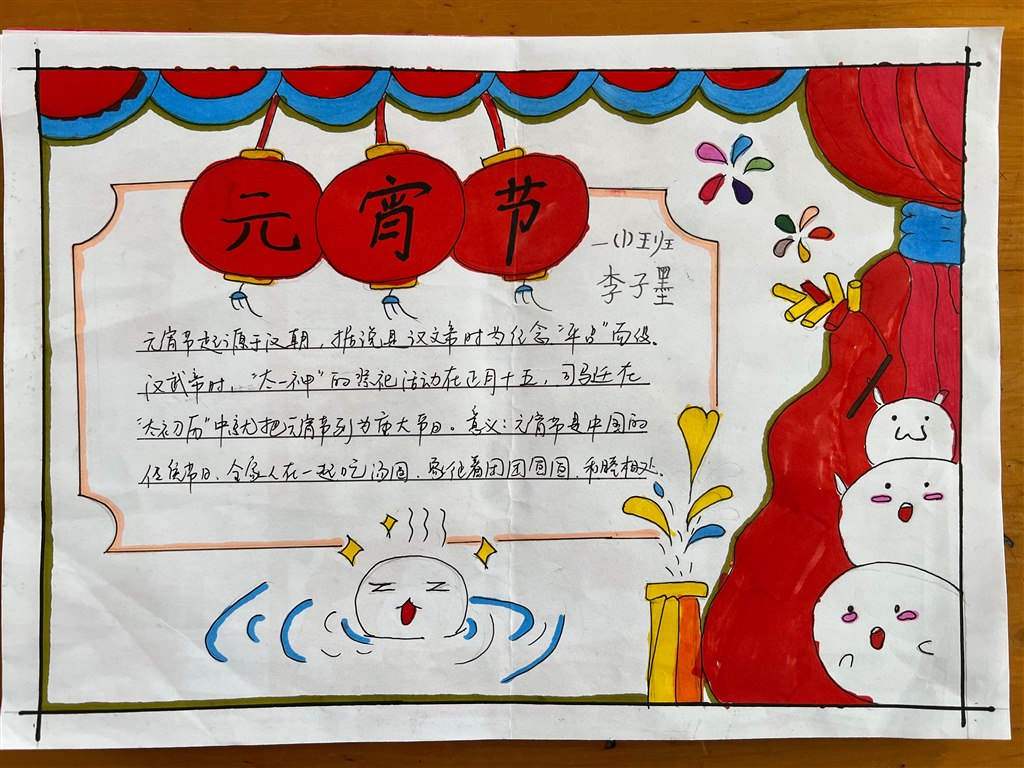 元宵节
一(1)班
李子墨
元宵节起源于汉朝，据说是汉文帝时为纪念"平吕"而设。
汉武帝时，"太一神"的祭祀活动在正月十五，司马迁在
"太初历"中就把元宵节列为重大节日。意义：元宵节是中国的
传统节日，全家人在一起吃汤圆，象征着团团圆圆，和睦相处。